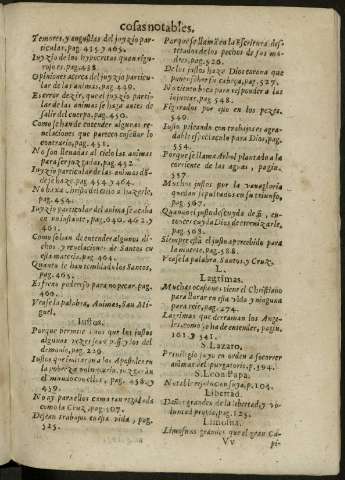 cosas notables.
Temores, y angustias del juyzio par-
ticular, pag. 435. y 465.
Iuyzio de los hypocritas quan rigu-
roso es. pag. 438.
Opiniones acerca del juyzio particu-
lar de las animas, pag. 449.
Error dezir, que el juyzio particu-
lar de las animas se haga antes de
salir del cuerpo, pag. 450.
Como se han de entender algunas re-
uelaciones que parecen enseñar lo
contrario, pag. 451.
No son lleuadas al cielo las animas
para ser juzgadas, pag. 452.
Iuyzio particular de las animas
de se haze. pag. 454. y 464.
No baxa Christo del cielo a hazerlo,
pag. 454.
Iuyzio particular del anima se acaba
en vn instante, pag. 460. 462. y
461.
Como se han de entender algunos di-
chos y reuelaciones de Santos en
esta materia. pag. 464.
Quanto le han temblado los Santos,
pag. 465.
Es freno poderoso para no pecar. pag.
460.
Vease la palabra, Animas, San Mi-
guel.
Iustos.
Porque permite Dios que los justos
algunas vezes
demonio, pag. 229.
Iustos que imitaron a los Apostoles en
la pobreza voluntaria, juzgarán
el mundo con ellos, pag. 458. y
459.
No ay para ellos cama tan regalada
como la Cruz, pag. 507.
Dessean trabajos en esta vida, pag.
525.
Porque se llamã en la Escritura des-
tetados de los pechos de sus ma-
dres, pag. 526.
De los justos haze Dios corona que
poner sobre su cabeça, pag. 527.
No tienen boca para responder a las
injurias, pag. 548.
Figurados por esso en los pezes,
549.
Iusto peleando con trabajos es agra-
dable espectaculo para Dios, pag.
554.
Porque se llama Arbol plantado a la
corriente de las aguas, pagin.
557.
Muchos justos por la vanagloria
quedan sepultados en su triunfo,
pag. 567.
Quando el justo descuyda de si, en-
tonces cuyda Dios de
pag. 563.
Siempre està el justo apercebido para
la muerte, pag. 588.
Vease la palabra, Santos, y Cruz.
L.
Lagrimas.
Muchas ocasiones tiene el Christiano
para llorar en esta vida y ninguna
para reir, pag. 274.
Lagrimas que derraman los Ange-
les, como se ha de entender, pagin.
161. y 341.
S. Lazaro.
Priuilegio suyo en orden a socorrer
animas del purgatorio. p. 394.
S. Leon Papa.
Notable rejoñcon suya. p. 104.
Libertad.
Daños grandes de la libertad y vo-
luntad propria, pag. 125.
Limosna.
Limosnas grandes que el gran Ca-
Vv
pi-